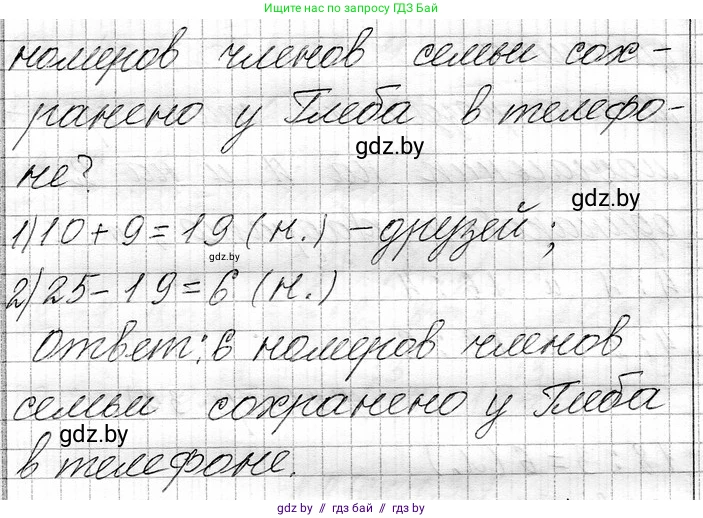 Ищите нас по запросу ГДЗ Бай
номеров членов семьи сох-
ранено у Глеба в телефо-
gdz.by
не?
gdz.by
1) 10 + 9 = 19 (н.) - друзей;
gdz.by
2) 25 - 19 = 6 (н.)
Ответ: 6 номеров членов
семьи сохранено у Глеба
gdz.by
в телефоне.
gdz.by // гдз бай // gdz.by